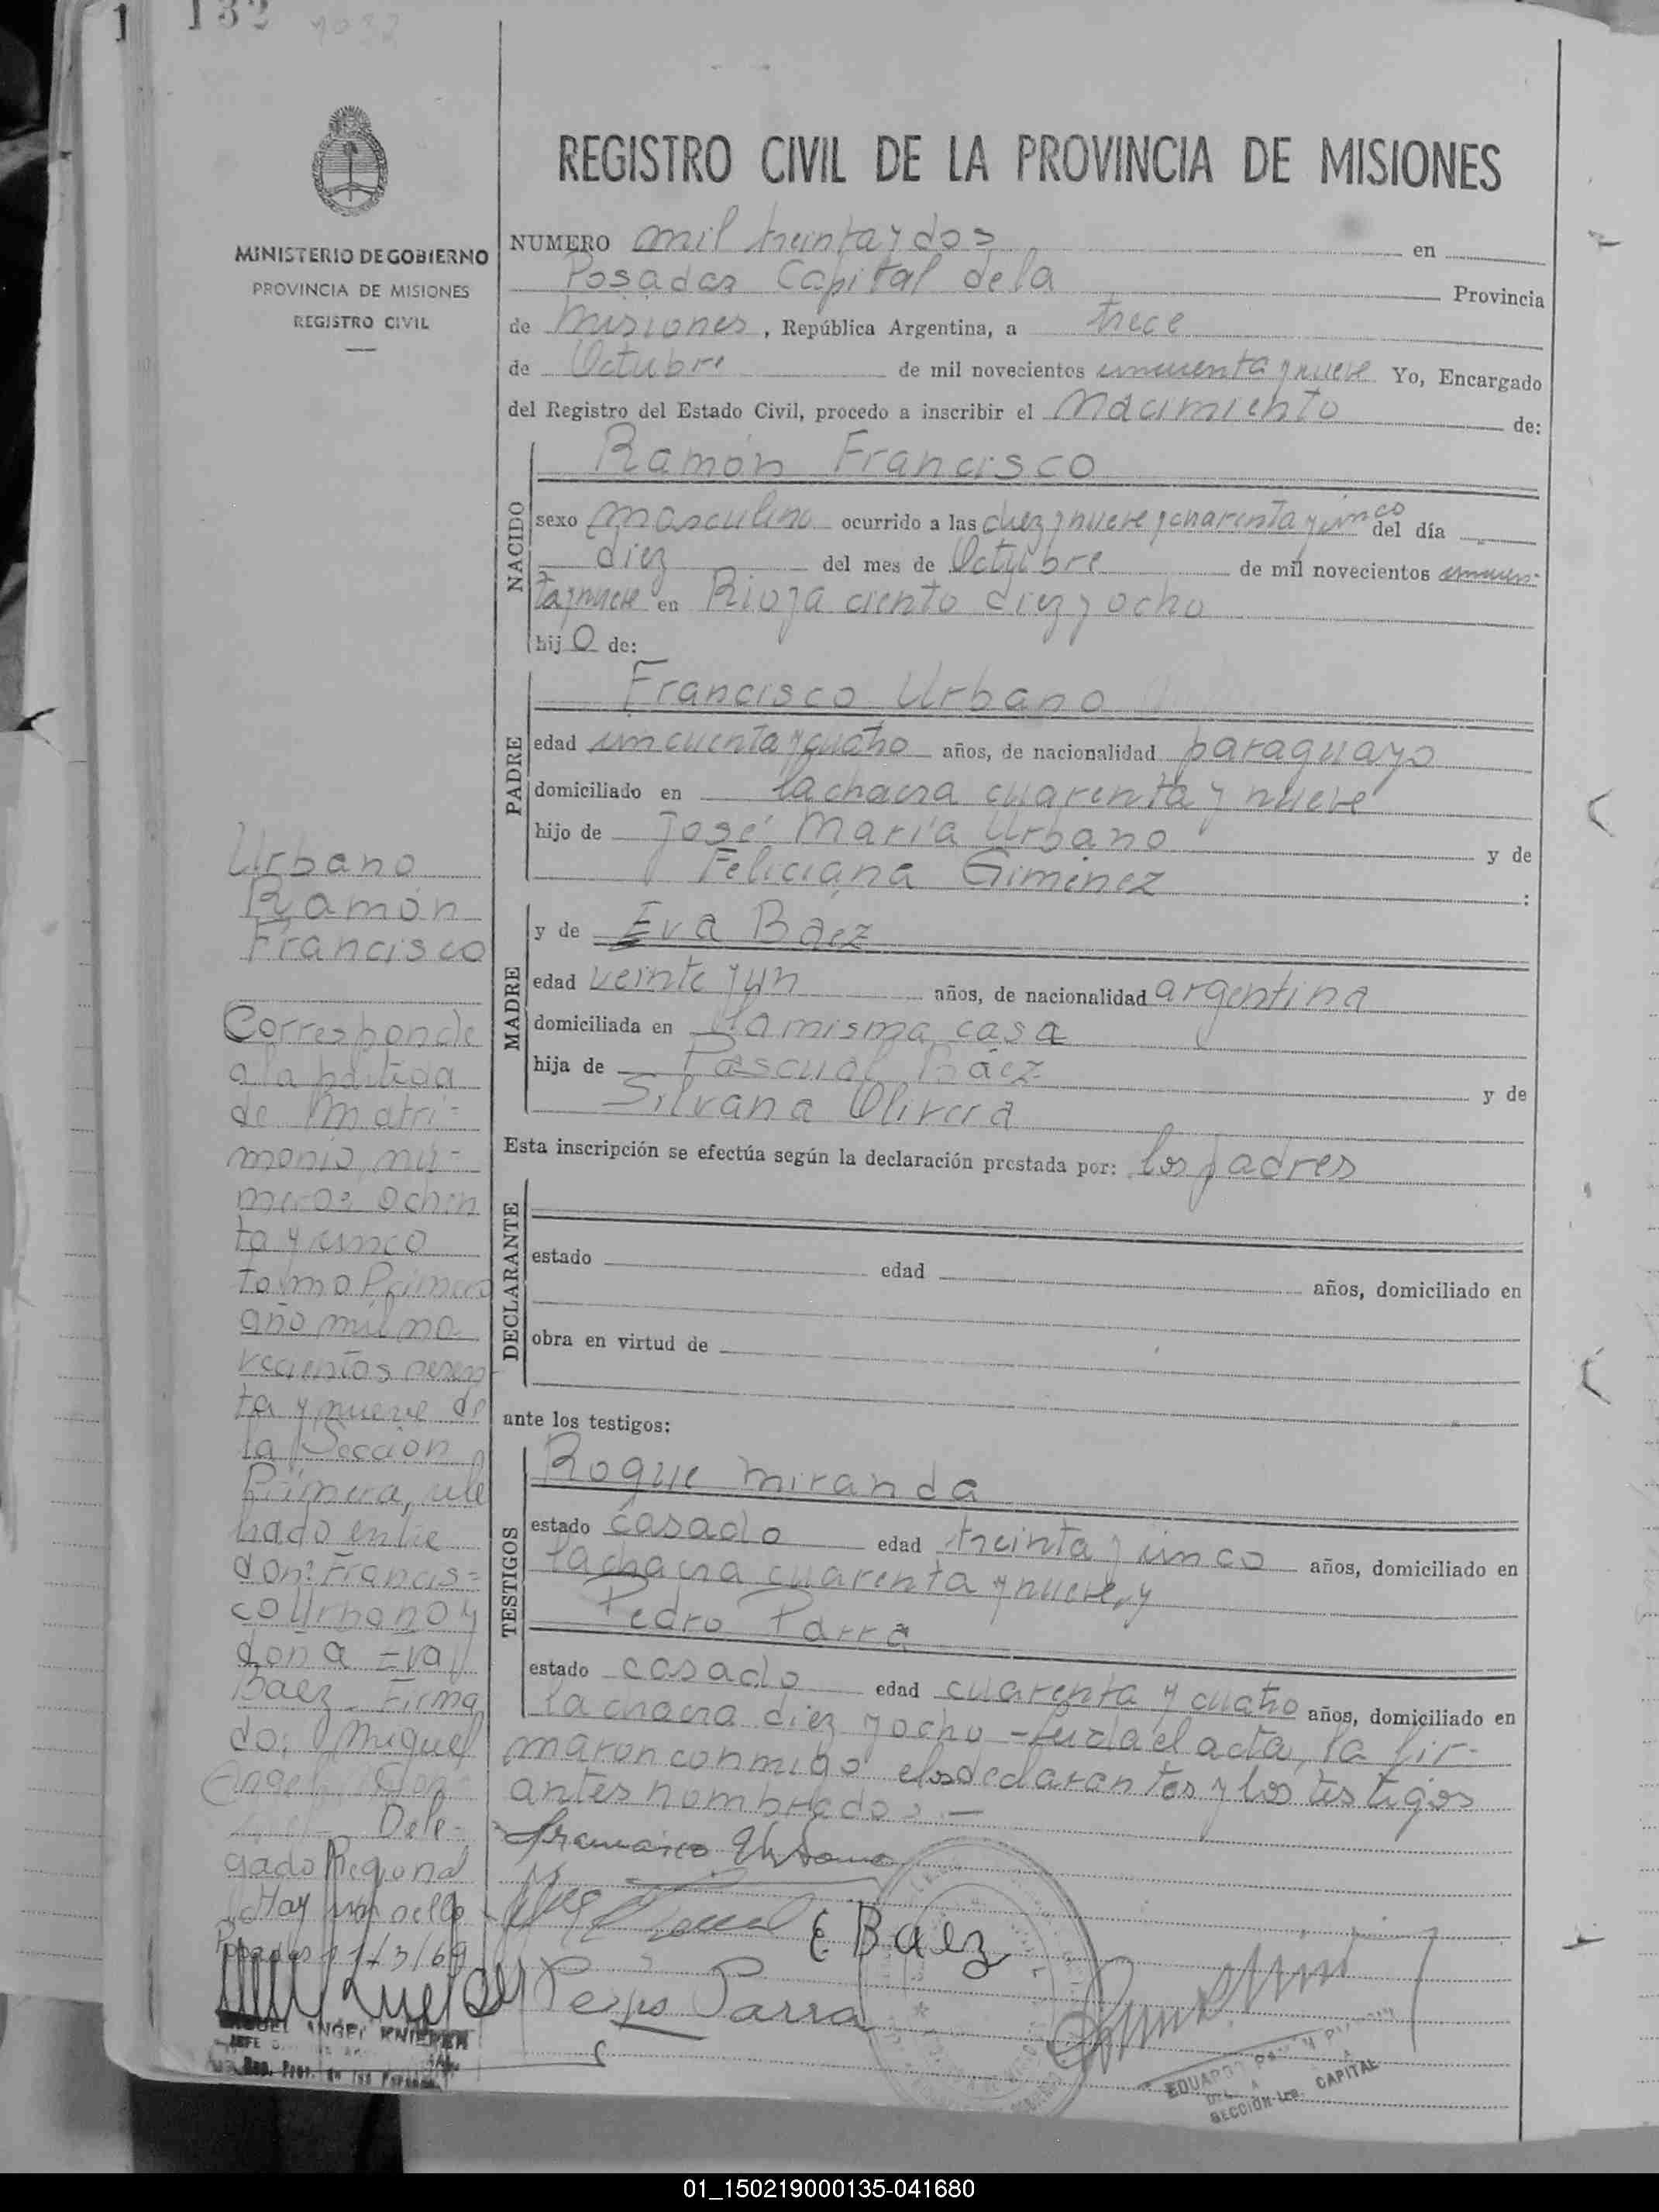 132 1032
MINISTERIO DE GOBIERNO
PROVINCIA DE MISIONES
REGISTRO CIVIL
REGISTRO CIVIL DE LA PROVINCIA DE MISIONES
NUMERO mil treinta y dos en
Posadas Capital de la Provincia
de Misiones, República Argentina, a trece
de Octubre de mil novecientos cincuenta y nueve Yo, Encargado
del Registro del Estado Civil, procedo a inscribir el Nacimiento de:
NACIDO
Ramón Francisco
sexo masculino ocurrido a las diez y nueve y cuarenta y cinco del día
diez del mes de Octubre de mil novecientos cincuen-
ta y nueve en Rioja ciento diez y ocho
hijo de:
PADRE
Francisco Urbano
edad cincuenta y cuatro años, de nacionalidad paraguayo
domiciliado en la chacra cuarenta y nueve
hijo de José María Urbano y de
Feliciana Giménez :
MADRE
y de Eva Báez
edad veinte y un años, de nacionalidad argentina
domiciliada en la misma casa
hija de Pascual Báez y de
Silvana Olivera
Esta inscripción se efectúa según la declaración prestada por: los padres
DECLARANTE
estado edad años, domiciliado en
obra en virtud de
ante los testigos:
TESTIGOS
Roque Miranda
estado casado edad treinta y cinco años, domiciliado en
la chacra cuarenta y nueve, y
Pedro Parra
estado casado edad cuarenta y cuatro años, domiciliado en
la chacra diez y ocho - Leida el acta, la fir-
maron conmigo los declarantes y los testigos
antes nombrados.—
Francisco Urbano
E Baez
Parra
EDUARDO
SECCIÓN 1ra. CAPITAL
Urbano
Ramón
Francisco
Corresponde
a la partida
de Matri-
monio nú-
mero: ochen
ta y cinco
tomo Primero
año mil no
vecientos sesen
ta y nueve de
la Sección
Primera, cele
brado entre
don: Francis-
co Urbano y
doña Eva
Baez. Firma
do: Miguel
Angel
Dele-
gado Regional
Hay un sello
Posadas 11/3/69
MIGUEL ANGEL KNIEPER
JEFE
01_150219000135-041680